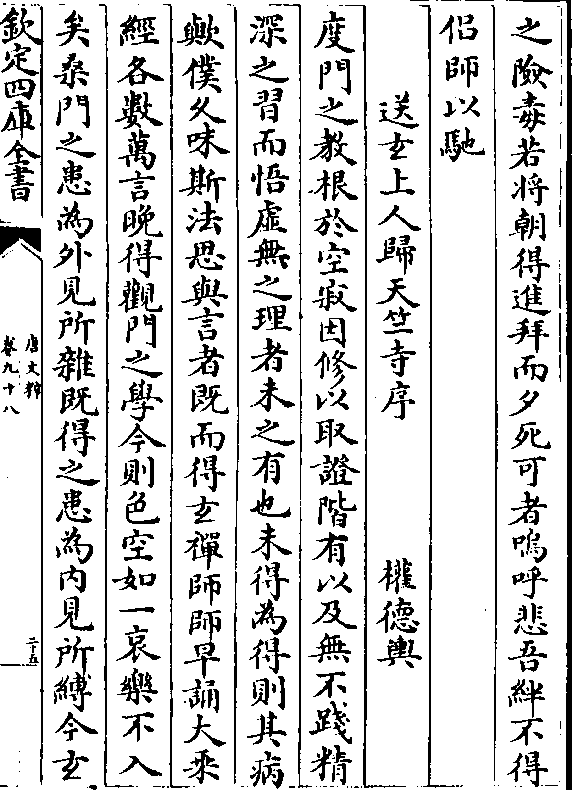 之險毒若將朝得進拜而夕死可者嗚呼悲吾絆不得
侣師以馳
送玄上人歸天竺寺序 權德輿
度門之教根於空寂因修以取證階有以及無不踐精
深之習而悟虛無之理者未之有也未得為得則其病
歟僕久味斯法思與言者既而得玄禪師師早誦大乘
經各數萬言晚得觀門之學今則色空如一哀樂不入
矣桑門之患為外見所雜既得之患為内見所縛今玄
欽定四庫全書
唐文粹
卷九十八
二十五